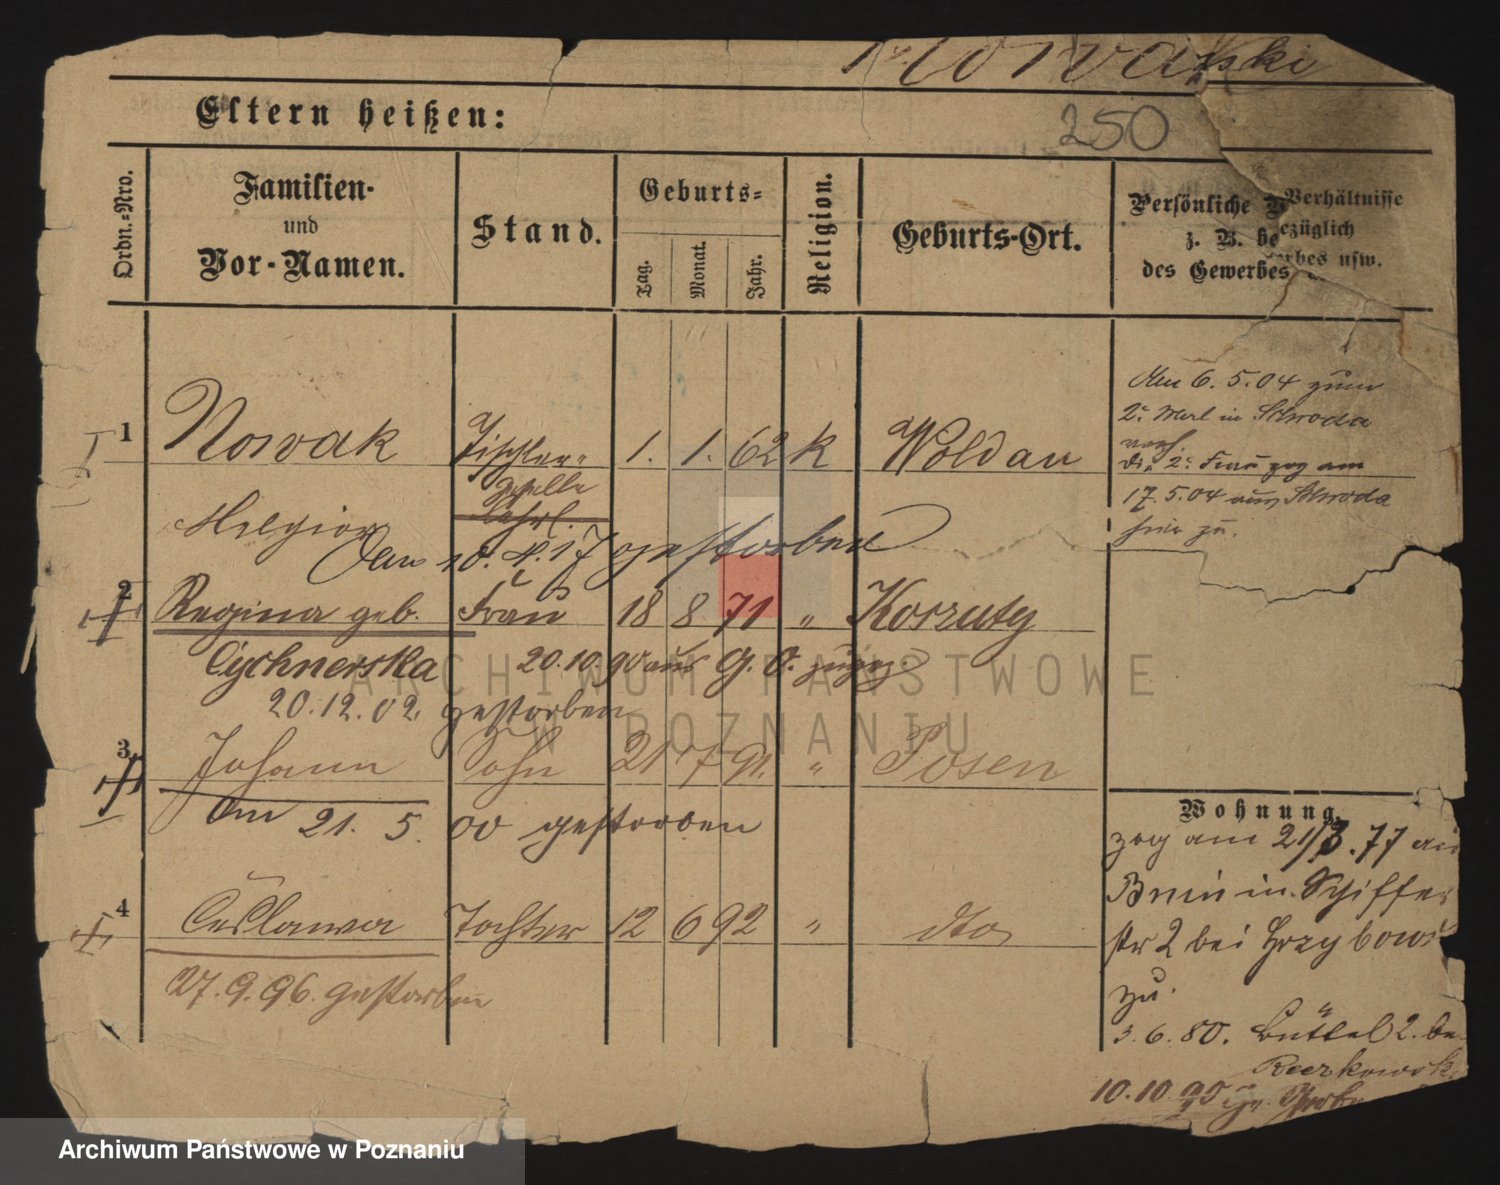 Nowakski
Eltern heißen:
250
Ordn.-Nro.
Familien-
und
Vor-Namen.
Stand.
Geburts-
Tag.
Monat.
Jahr.
Religion.
Geburts-Ort.
Persönliche Verhältnisse
z. B. bezüglich
des Gewerbes usw.
1 Nowak Tischler- 1. 1. 62 k Woldau
geselle
Melgior
Den 10. 4. 17 gestorben
den 6. 5. 04 zum
2. Mal in Schroda
verh.
die 2. Frau zog am
17. 5. 04 aus Schroda
hier zu.
2 Regina geb. Frau 18 8 71 " Koszuty
Cychnerska 20.10.90 aus G. O. zugez.
20.12.02. gestorben
3 Johann Sohn 21 7 91. " Posen
Am 21. 5. 00 gestorben
4 Česlawa Tochter 12 6 92 " dto
27. 9. 96. gestorben
Wohnung.
zog am 21/3. 77 aus
Bnin in Schiffer
str 2 bei Grzybows
zu.
3. 6. 80. Büttel 2. be
Reerkowsk
10. 10. 95
ARCHIWUM PAŃSTWOWE
W POZNANIU
Archiwum Państwowe w Poznaniu